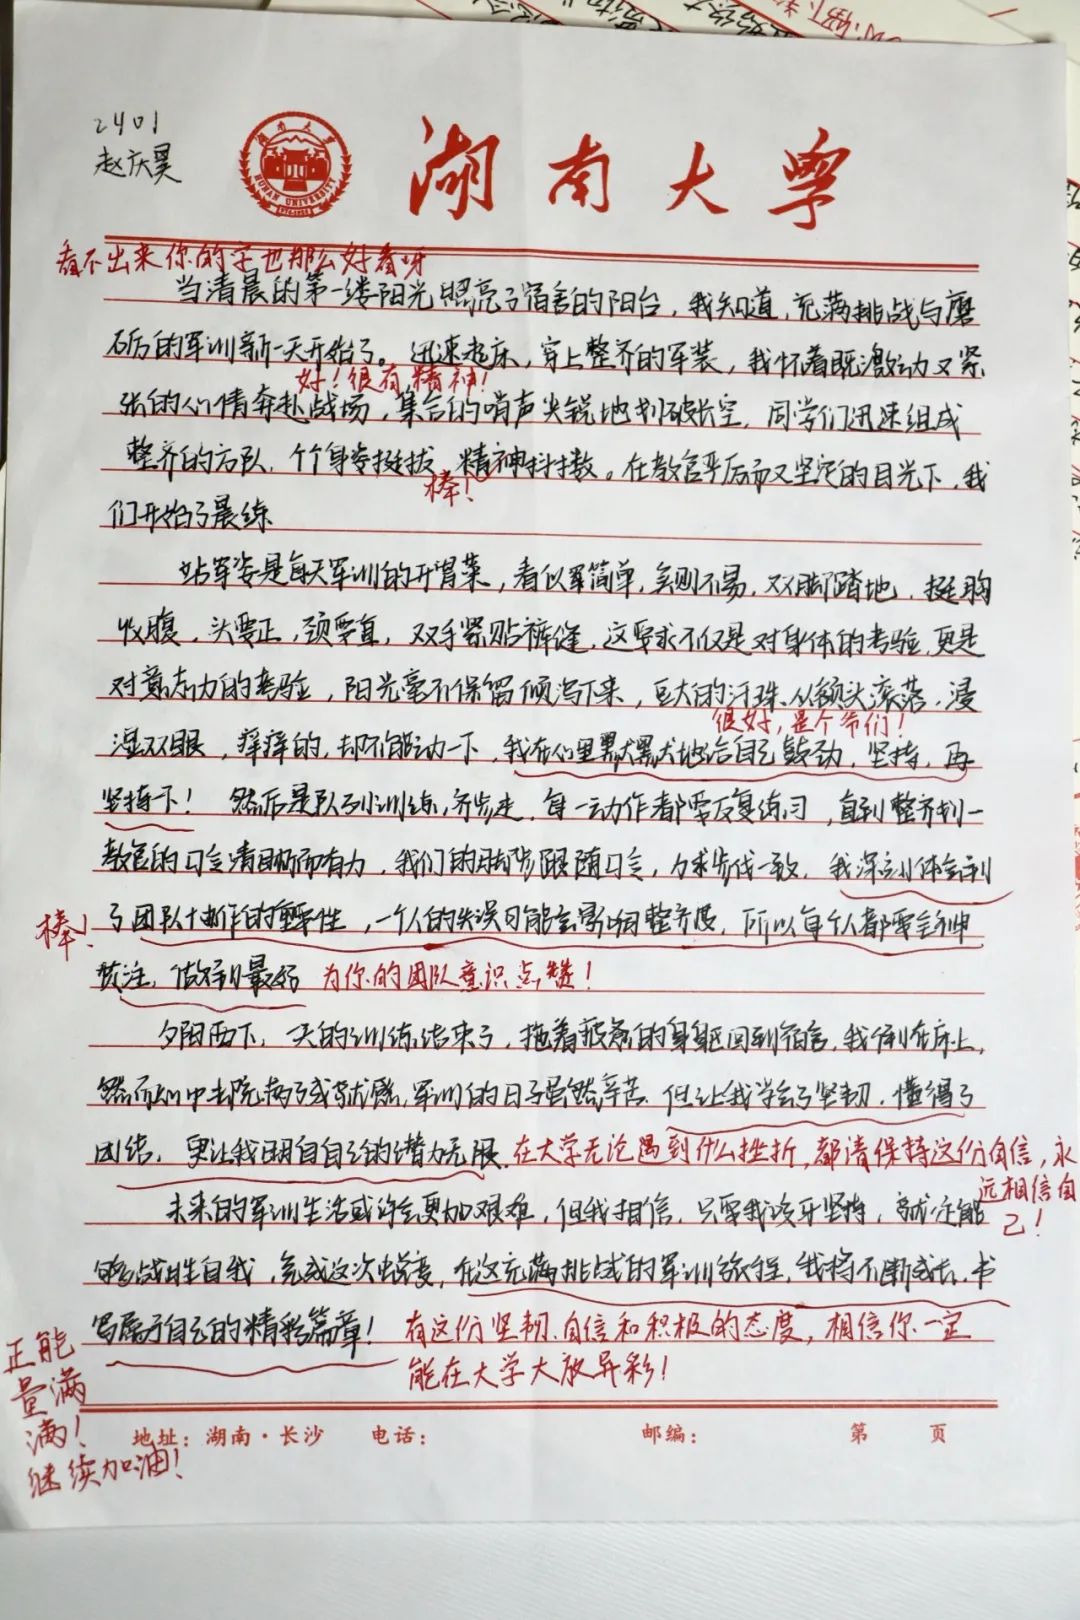 2401
赵庆昊
湖南大学
HUNAN UNIVERSITY
看不出来你的字也那么好看呀
当清晨的第一缕阳光照亮了宿舍的阳台，我知道，充满挑战与磨
砺的军训新一天开始了。迅速起床，穿上整齐的军装，我怀着既激动又紧
好！很有精神！
张的心情奔赴战场，集合的哨声尖锐地划破长空，同学们迅速组成
整齐的方队，个个身姿挺拔，精神抖擞。在教官严厉而又坚定的目光下，我
棒！
们开始了晨练
站军姿是每天军训的开胃菜，看似军简单，实则不易，双脚踏地，挺胸
收腹，头要正，颈要直，双手紧贴裤缝，这要求不仅是对身体的考验，更是
对意志力的考验，阳光毫不保留倾泻下来，巨大的汗珠从额头滚落，浸
很好，是个爷们！
湿双眼，痒痒的，却不能动一下，我在心里默默地给自己鼓劲，坚持，再
坚持一下！然后是队列训练，齐步走，每一动作都要反复练习，直到整齐划一
教官的口令清晰而有力，我们的脚步跟随口令，力求步伐一致，我深刻体会到
棒！
了团队协作的重要性，一个人的失误可能会影响整齐度，所以每个人都需全神
贯注，做到最好 为你的团队意识点赞！
夕阳西下，一天的训练结束了，拖着疲惫的身躯回到宿舍，我倒在床上，
然而心中却充满了成就感，军训的日子虽然辛苦，但让我学会了坚韧，懂得了
团结，更让我明白自己的潜力无限。在大学无论遇到什么挫折，都请保持这份自信，永
远相信自
己！
未来的军训生活或许会更加艰难，但我相信，只要我咬牙坚持，就一定能
够战胜自我，完成这次蜕变，在这充满挑战的军训旅程，我将不断成长，书
写属于自己的精彩篇章！有这份坚韧、自信和积极的态度，相信你一定
能在大学大放异彩！
正能
量满
满！
继续加油！
地址：湖南·长沙 电话： 邮编： 第 页